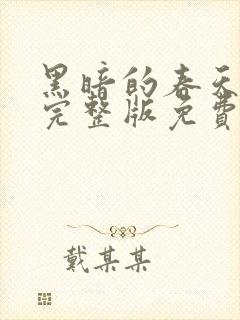 黑暗的春天
完整版免費
戴某某